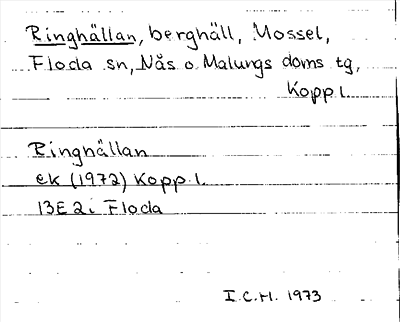 Ringhällan, berghäll, Mossel,
Floda sn, Nås o Malungs doms tg,
Kopp.l.
Ringhällan
ek (1972) Kopp.l.
13E 2i Floda
I.C.H. 1973